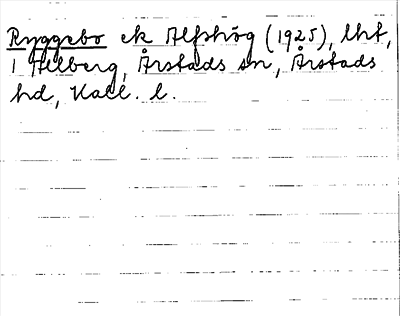 Ryggsbo ek Alfshög (1925), lht,
1 Alberg, Årstads sn, Årstads
hd, Hall. l.